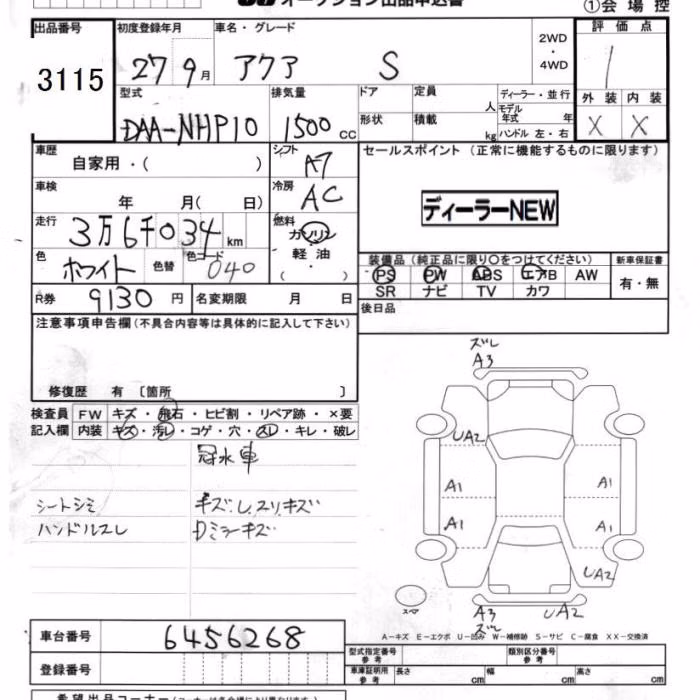 オークション出品申込書
①会場控
出品番号 初度登録年月 車名・グレード 2WD・4WD 評価点
3115 27 9月 アクア S 1
型式 排気量 ドア 定員 人 ディーラー・並行 外装 内装
DAA-NHP10 1500cc 形状 積載 kg モデル年式 年 ハンドル 左・右 X X
車歴 自家用・( ) シフト A7 セールスポイント (正常に機能するものに限ります)
車検 年 月( 日) 冷房 AC
ディーラーNEW
走行 3万6千034km 燃料 ガソリン・軽油 ( )
色 ホワイト 色替 色コード 040
装備品 (純正品に限り○をつけてください) 新車保証書
PS PW ABS エアB AW 有・無
SR ナビ TV カワ
R券 9130円 名変期限 月 日
後日品
注意事項申告欄(不具合内容等は具体的に記入して下さい)
修復歴 有 〔箇所 〕
検査員 FW キズ・飛石・ヒビ割・リペア跡・×要
記入欄 内装 キズ・汚レ・コゲ・穴・スレ・キレ・破レ
冠水車
シートシミ キズ.L.スリキズ
ハンドルスレ Dミラーキズ
ズレ
A3
UA2
A1 A1
A1 A1
UA2
スペア
A3 UA2
ズレ
A－キズ E－エクボ U－凹み W－補修跡 S－サビ C－腐食 XX－交換済
車台番号 6456268
型式指定番号 参考 類別区分番号 参考
登録番号
車庫証明用 参考 長さ cm 幅 cm 高さ cm
希望出品コーナー